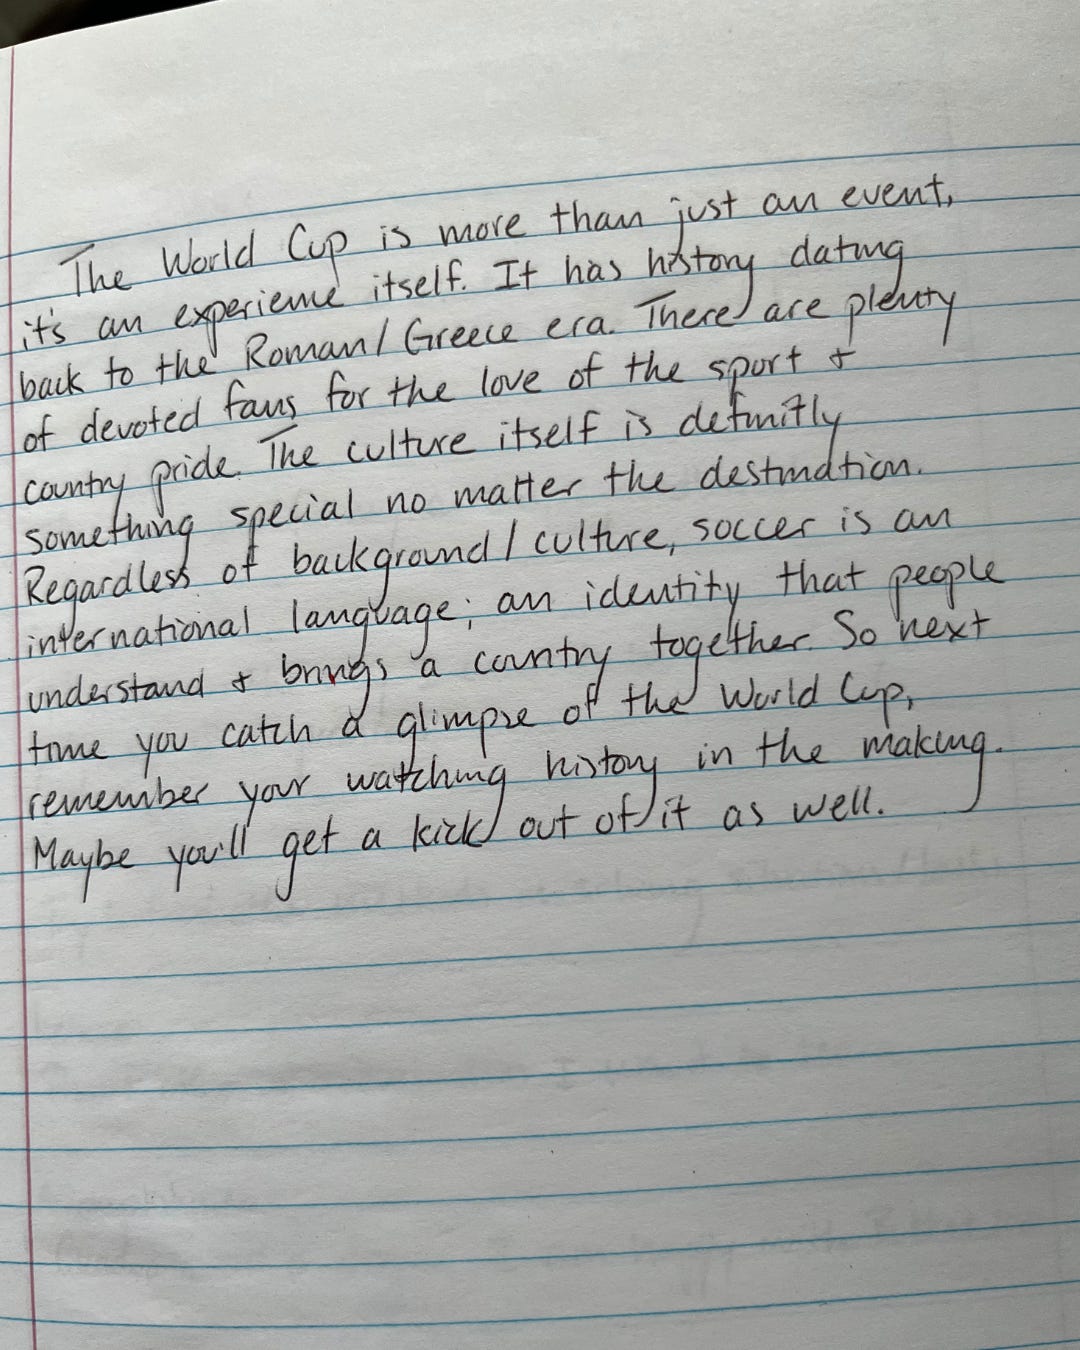 The World Cup is more than just an event,
it's an experience itself. It has history dating
back to the Roman/Greece era. There are plenty
of devoted fans for the love of the sport &
country pride. The culture itself is definitly
something special no matter the destination.
Regardless of background/culture, soccer is an
international language; an identity that people
understand & brings a country together. So next
time you catch a glimpse of the World Cup,
remember your watching history in the making.
Maybe you'll get a kick out of it as well.